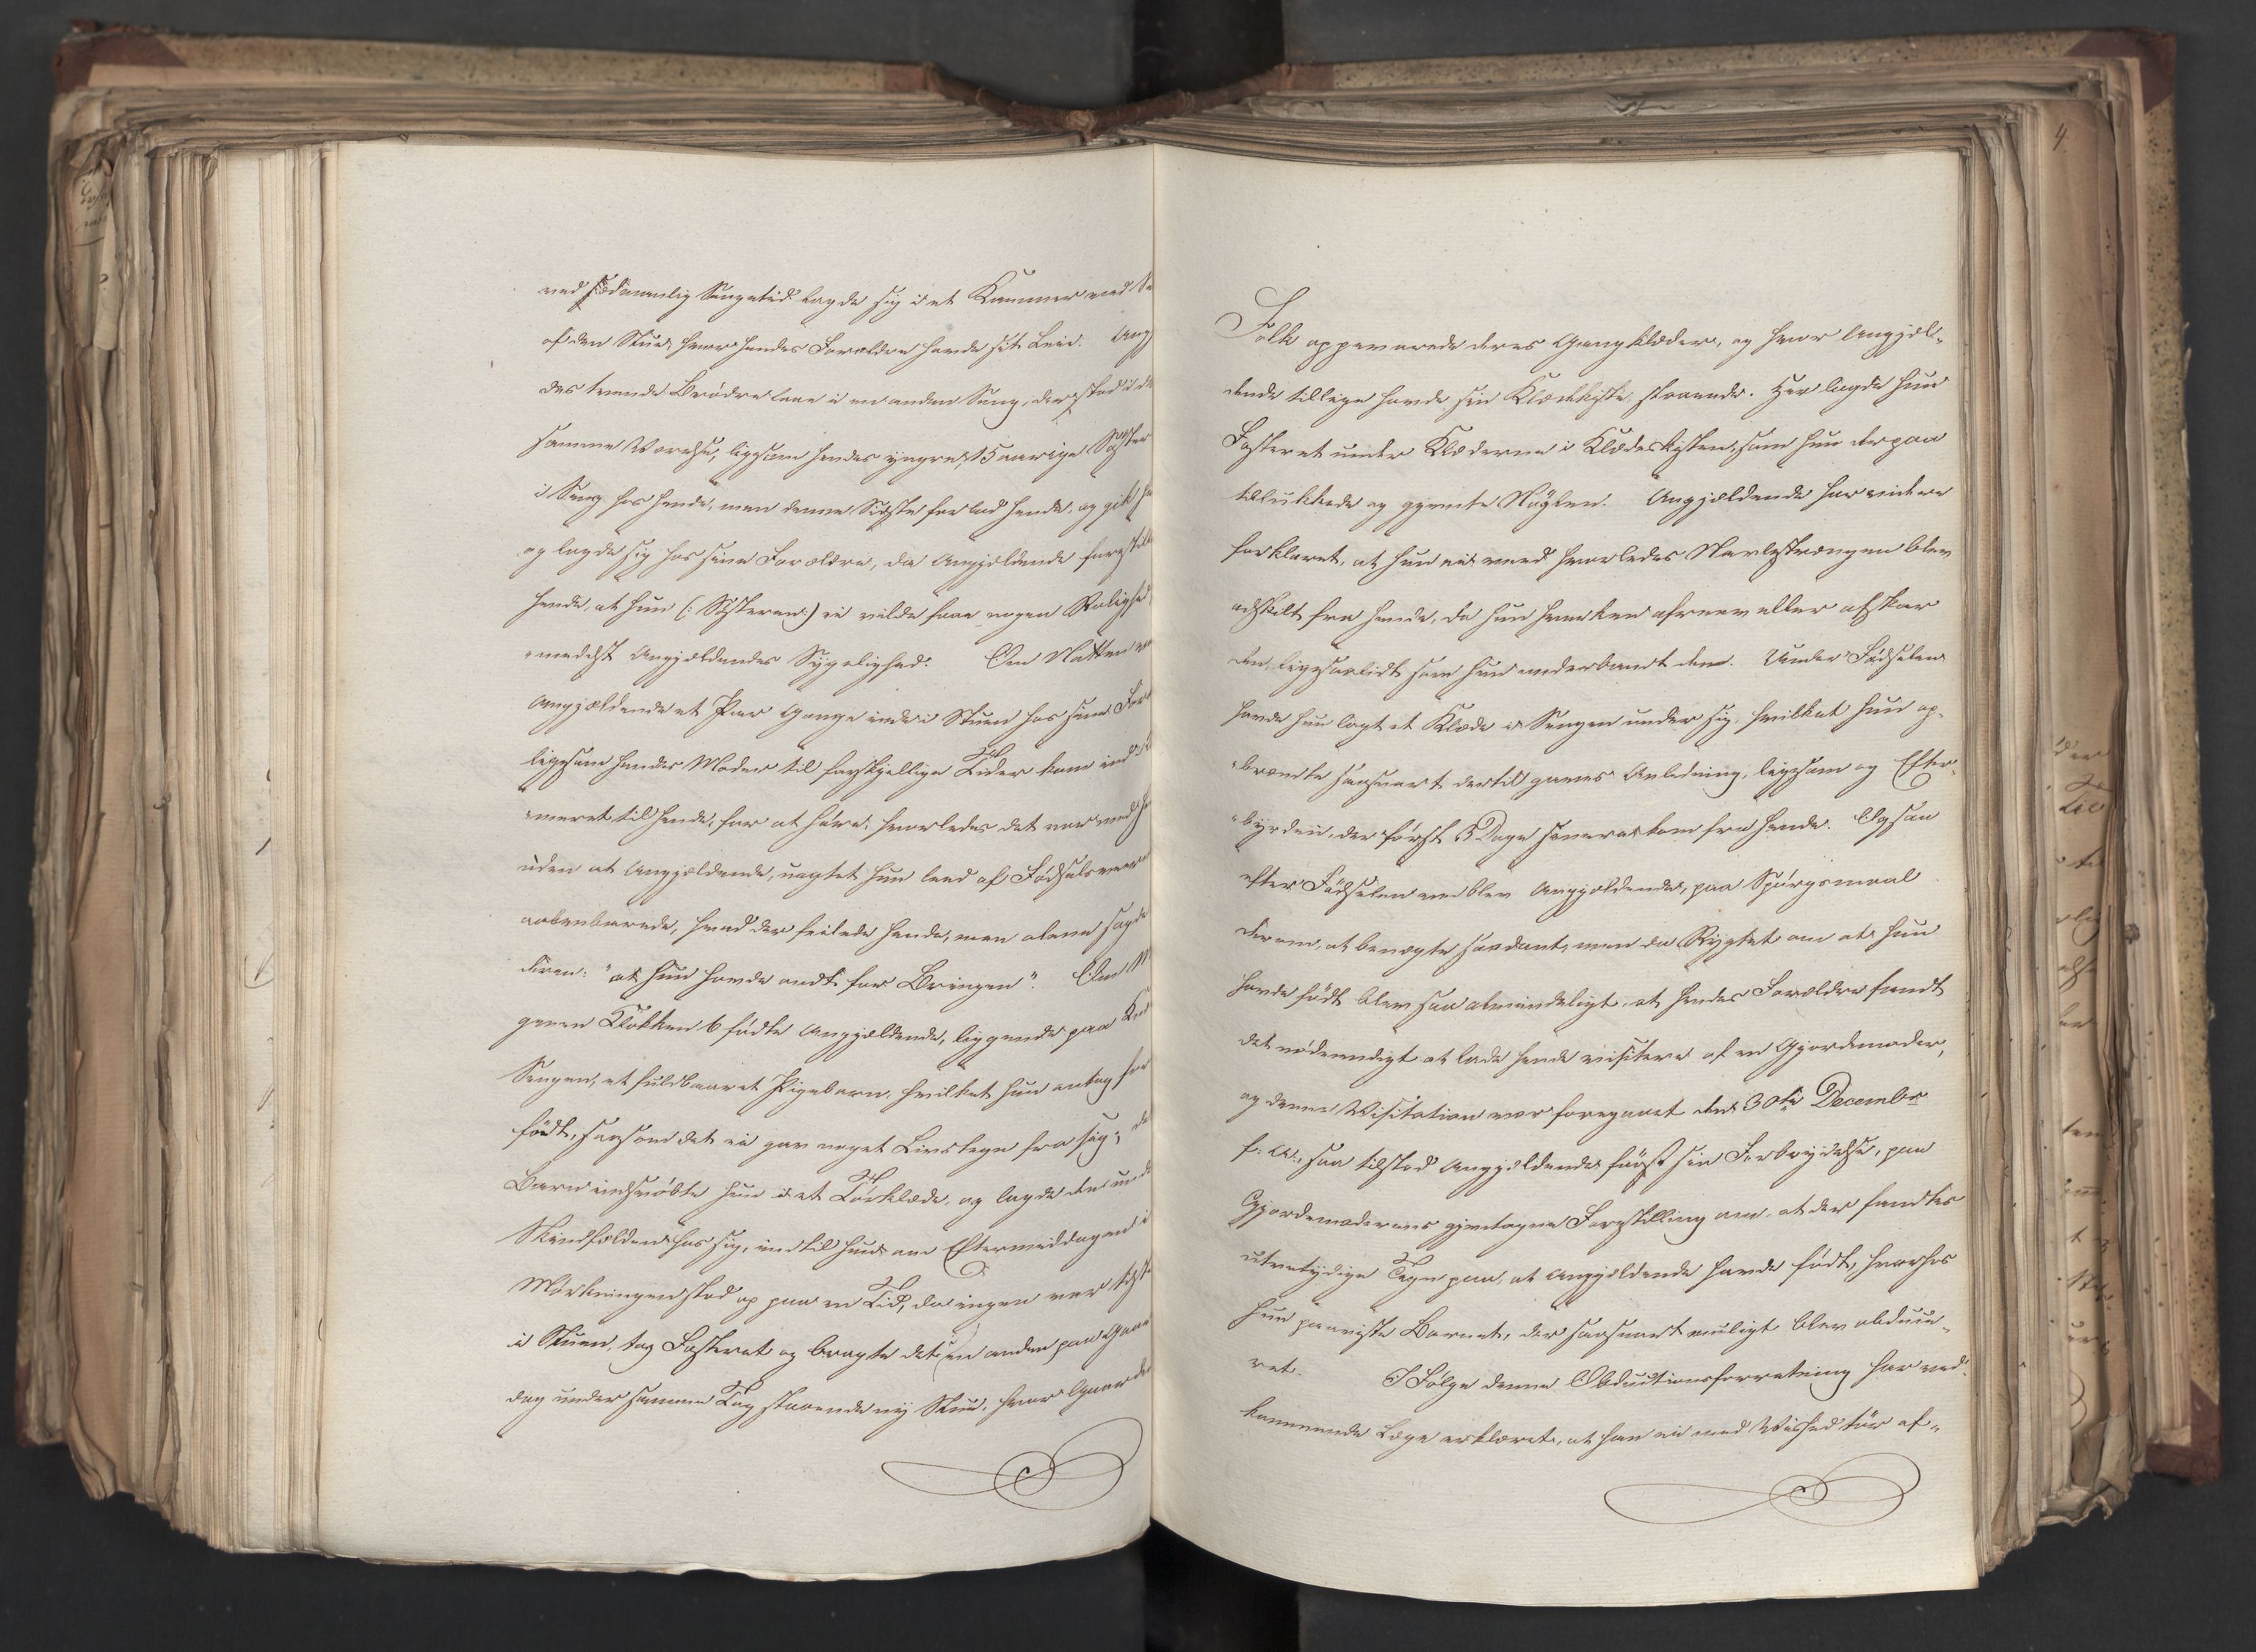 ved sædvanlig Sengetid lagde sig i et Kammer ved Si
af den Stue, hvor hendes Forældre havde sit Leie. Ang
des tvende Brødre laae i en anden Seng, der stod i de
samme Værelse, ligesom hendes yngre, 15 aarige Søster
i Seng hos hende, men denne Sidste forlod hende, og gik
og lagde sig hos sine Forældre, da Angjeldende forestill
hende, at hun (: Søsteren :) ei vilde faae nogen Rolighed
"medelst Angjeldendes Sygelighed. Om Natten va
Angjeldende et Par Gange inde i Stuen hos sine For
ligesom hendes Moder til forskjellige Tider kom ind i
"meret til hende, for at høre, hvorledes det var med he
uden at Angjeldende, uagtet hun leed af Fødselsveer
aabenbarede, hvad der feilede hende, men alene sagde
deren: "at hun havde ondt for Bringen". Om M
genen Klokken 6 fødte Angjeldende, liggende paa Knæ
Sengen, et fuldbaaret Pigebarn, hvilket hun antog for
født, saasom det ei gav noget Livstegn fra sig; de
Barn indsvøbte hun i et Tørklæde, og lagde det und
Skindfelden hos sig, indtil hun om Eftermiddagen i
Mørkningen stod op paa en Tid, da ingen var tilste
i Stuen, tog Fosteret og bragte det i en anden paa Gaar
dog under samme Tag staaende ny Stue, hvor Gaarde
Folk oppevarede deres Gangklæder, og hvor Angjel-
dende tillige havde sin Klædekiste staaende. Her lagde hun
Fosteret under Klæderne i Klædeskisten, som hun derpaa
tillukkede og gjemte Nøglen. Angjeldende har videre
forklaret, at hun ei veed hvorledes Navlestrængen blev
adskilt fra hende, da hun hverken afrev eller afskar
den, ligesaalidt som hun underbandt den. Under Fødselen
havde hun lagt et Klæde i Sengen under sig, hvilket hun op-
"brændte saasnart dertil gaves Anledning, ligesom og Efter-
"byrden, der først 3 Dage senere kom fra hende. Ogsaa
efter Fødselen vedblev Angjeldende, paa Spørgsmaal
derom, at benægte saadant, men da Rygtet om at hun
havde født blev saa almindeligt, at hendes Forældre fandt
det nødvendigt at lade hende visitere af en Gjordemoder,
og denne Visitation var foregaaet den 30te Decembr
f: A:, saa tilstod Angjeldende først sin Forbrydelse, paa
Gjordemoderens gjentagne Forestilling om, at der fandtes
utvetydige Tegn paa, at Angjeldende havde født, hvorhos
hun paaviste Barnet, der saasnart muligt blev obduce-
ret. I Følge denne Obductionsforretning har ved-
kommende Læge erklæret, at han ei med Vished tør af-